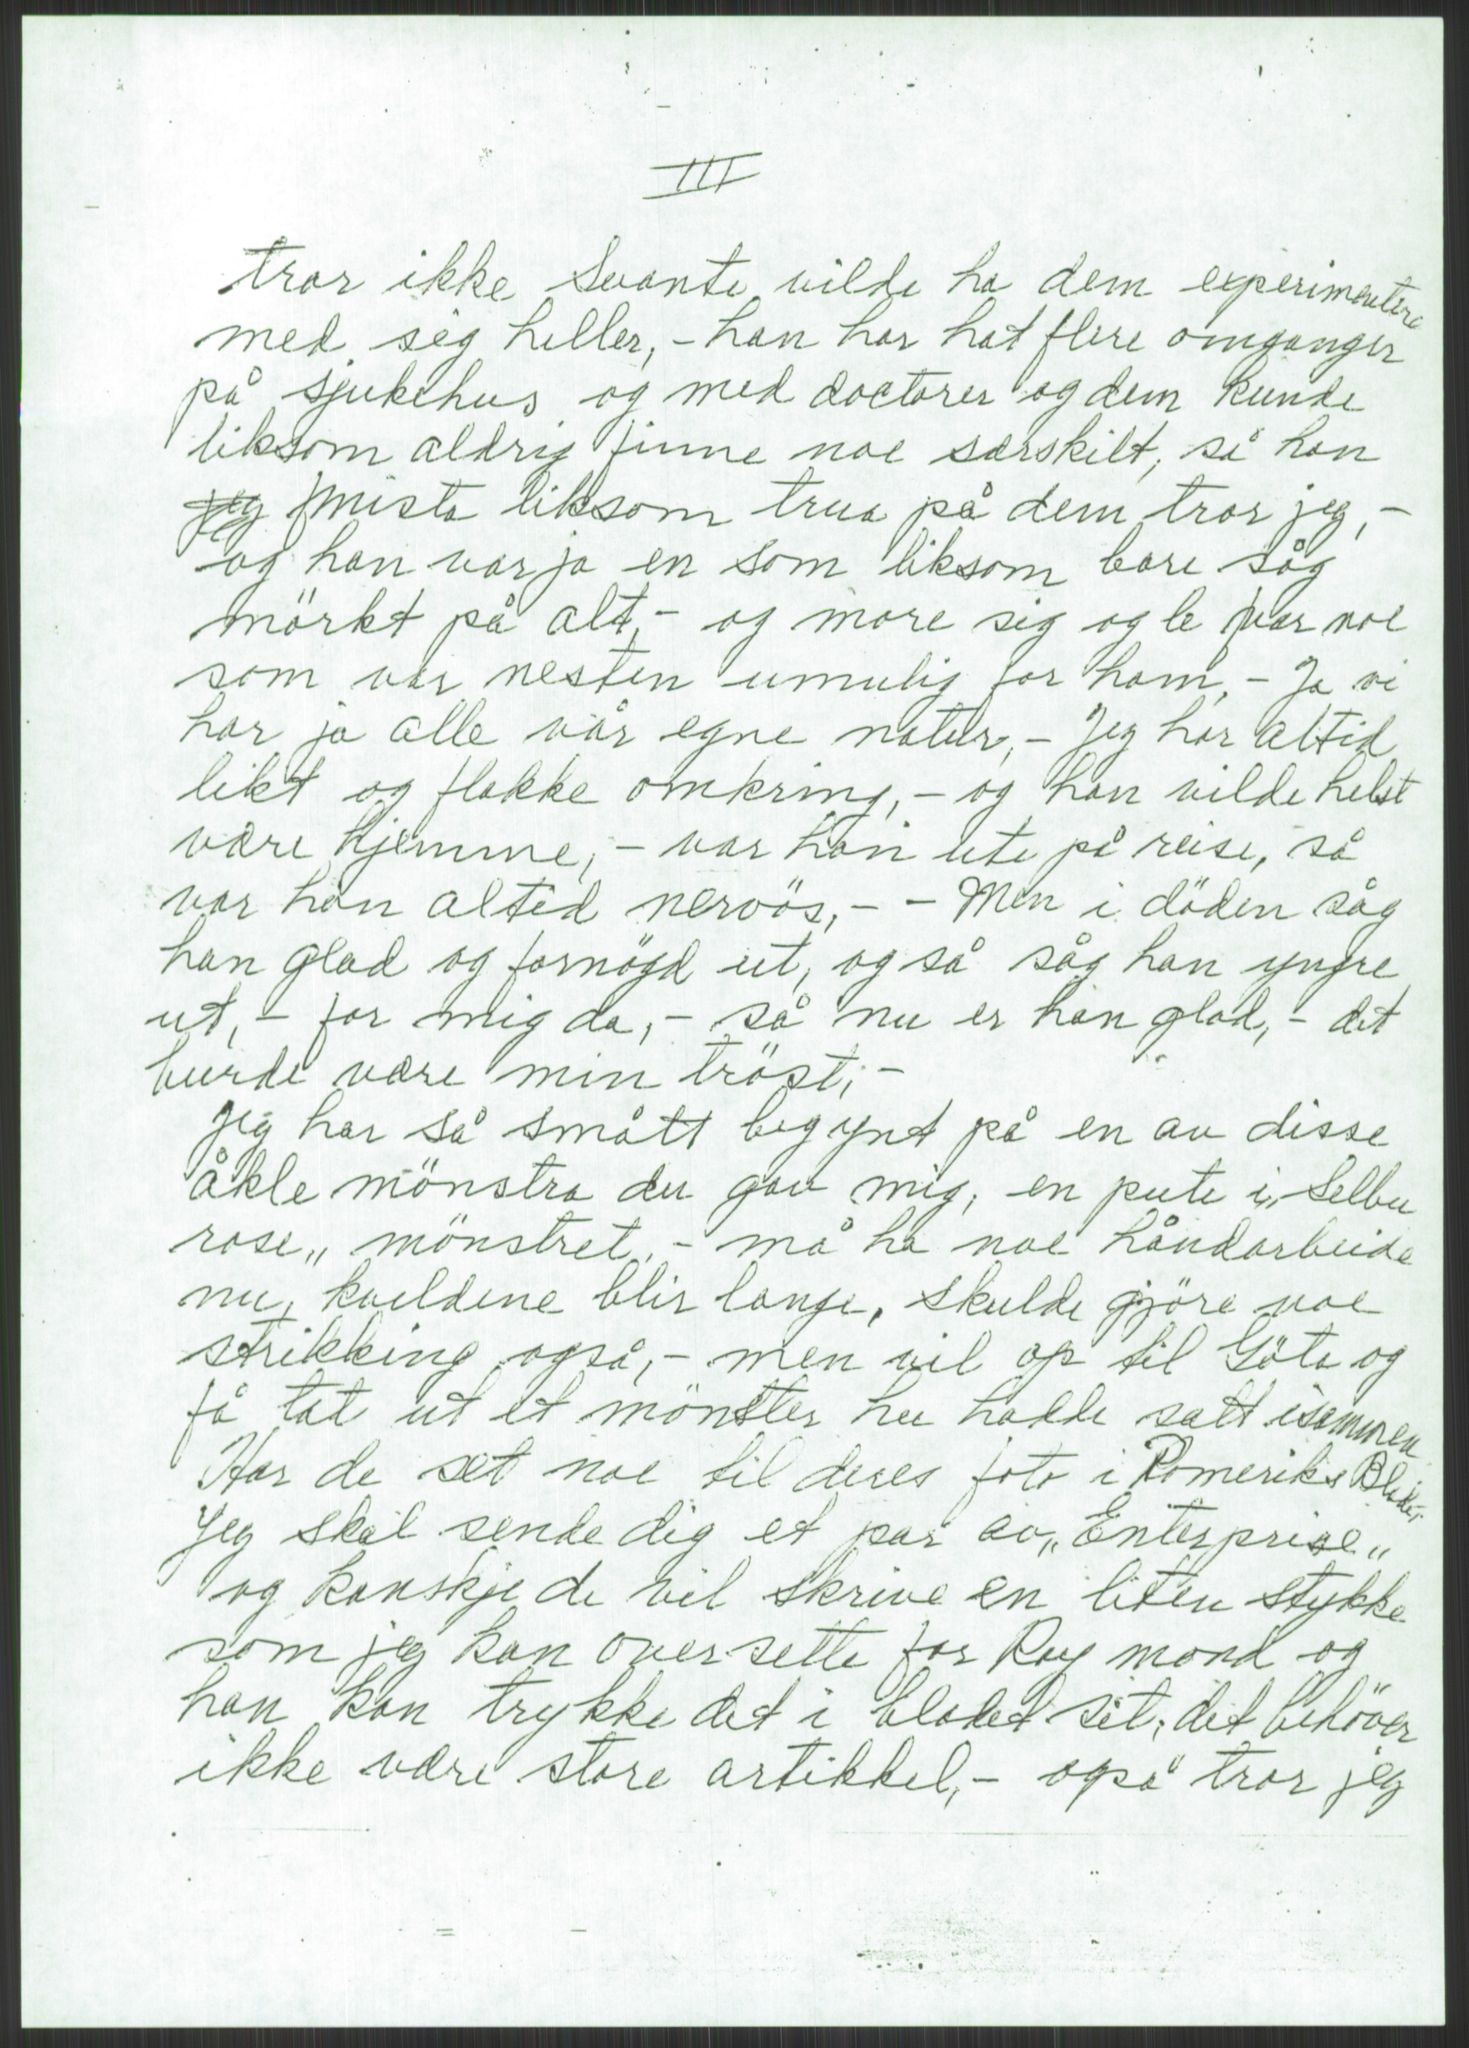 III
tror ikke Svante vilde ha dem experimentere
med sig heller, - han har hat flere omganger
på sjukehus og med doctorer og dem kunde
liksom aldrig finne noe særskilt, så han
jeg mista liksom trua på dem tror jeg, -
og han var ja en som liksom bare såg
mörkt på alt, - og more sig og le var noe
som var nesten umulig for ham, - Ja vi
har ja alle vår egne natur, - Jeg har altid
likt og flakke omkring, - og han vilde helst
være hjemme, - var han ute på reise, så
var han altid nervös, - - Men i döden såg
han glad og fornögd ut, og så såg han yngre
ut, - for mig da, - så nu er han glad, - det
burde være min tröst; -
Jeg har så smått begynt på en av disse
åkle mönstra du gav mig, en pute i „Selbu
rose„ mönstret, - må ha noe håndarbeide
nu, kveldene blir lange, skulde gjöre noe
strikking også, - men vil op til Göta og
få tat ut et mönster hu hadde satt isammen
Har de set noe til deres foto i Romeriks Blader
Jeg skal sende dig et par av „Enterprise„
og kanskje de vil skrive en liten stykke
som jeg kan oversette for Ray mond og
han kan trykke det i bladet sit, det behöver
ikke være store artikkel, - også tror jeg